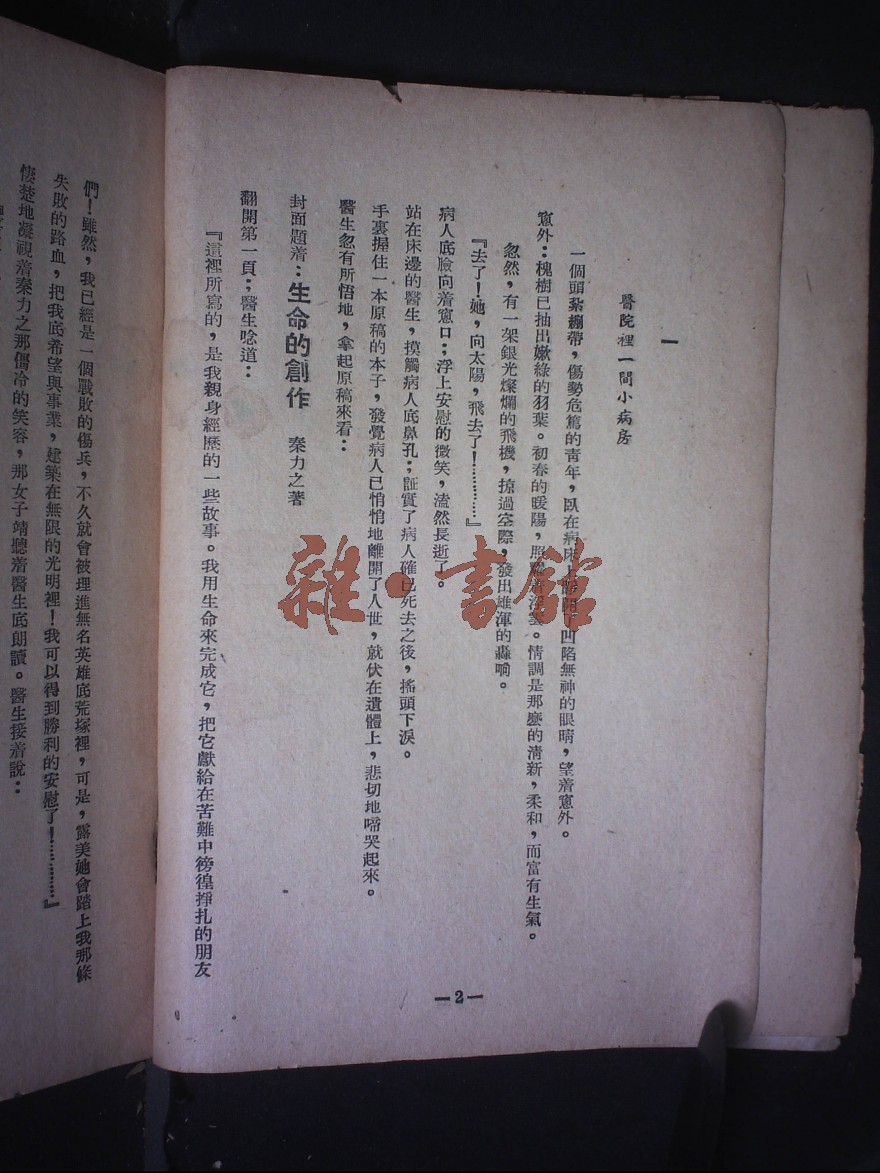 一
醫院裡一間小病房
一個頭紮綳帶，傷勢危篤的靑年，臥在病床上睜開下凹陷無神的眼睛，望着窻外。
窻外：槐樹已抽出嫩綠的羽葉。初春的暖陽，照耀着浮雲。情調是那麽的淸新，柔和，而富有生氣。
忽然，有一架銀光燦爛的飛機，掠過空際，發出雄渾的轟响。
『去了！她，向太陽，飛去了！…………』
病人底臉向着窻口；浮上安慰的微笑，溘然長逝了。
站在床邊的醫生，摸觸病人底鼻孔；証實了病人確已死去之後，搖頭下淚。
手裏握住一本原稿的本子，發覺病人已悄悄地離開了人世，就伏在遺體上，悲切地啼哭起來。
醫生忽有所悟地，拿起原稿來看：
封面題着：生命的創作 秦力之著
翻開第一頁；醫生唸道：
『這裡所寫的，是我親身經歷的一些故事。我用生命來完成它，把它獻給在苦難中徬徨掙扎的朋友
—2—
們！雖然，我已經是一個戰敗的傷兵，不久就會被埋進無名英雄底荒塚裡，可是，露美她會踏上我那條
失敗的路血，把我底希望與事業，建築在無限的光明裡！我可以得到勝利的安慰了！…………』
悽楚地凝視着秦力之那僵冷的笑容，那女子靖聽着醫生底朗讀。醫生接着說：
雜·書館